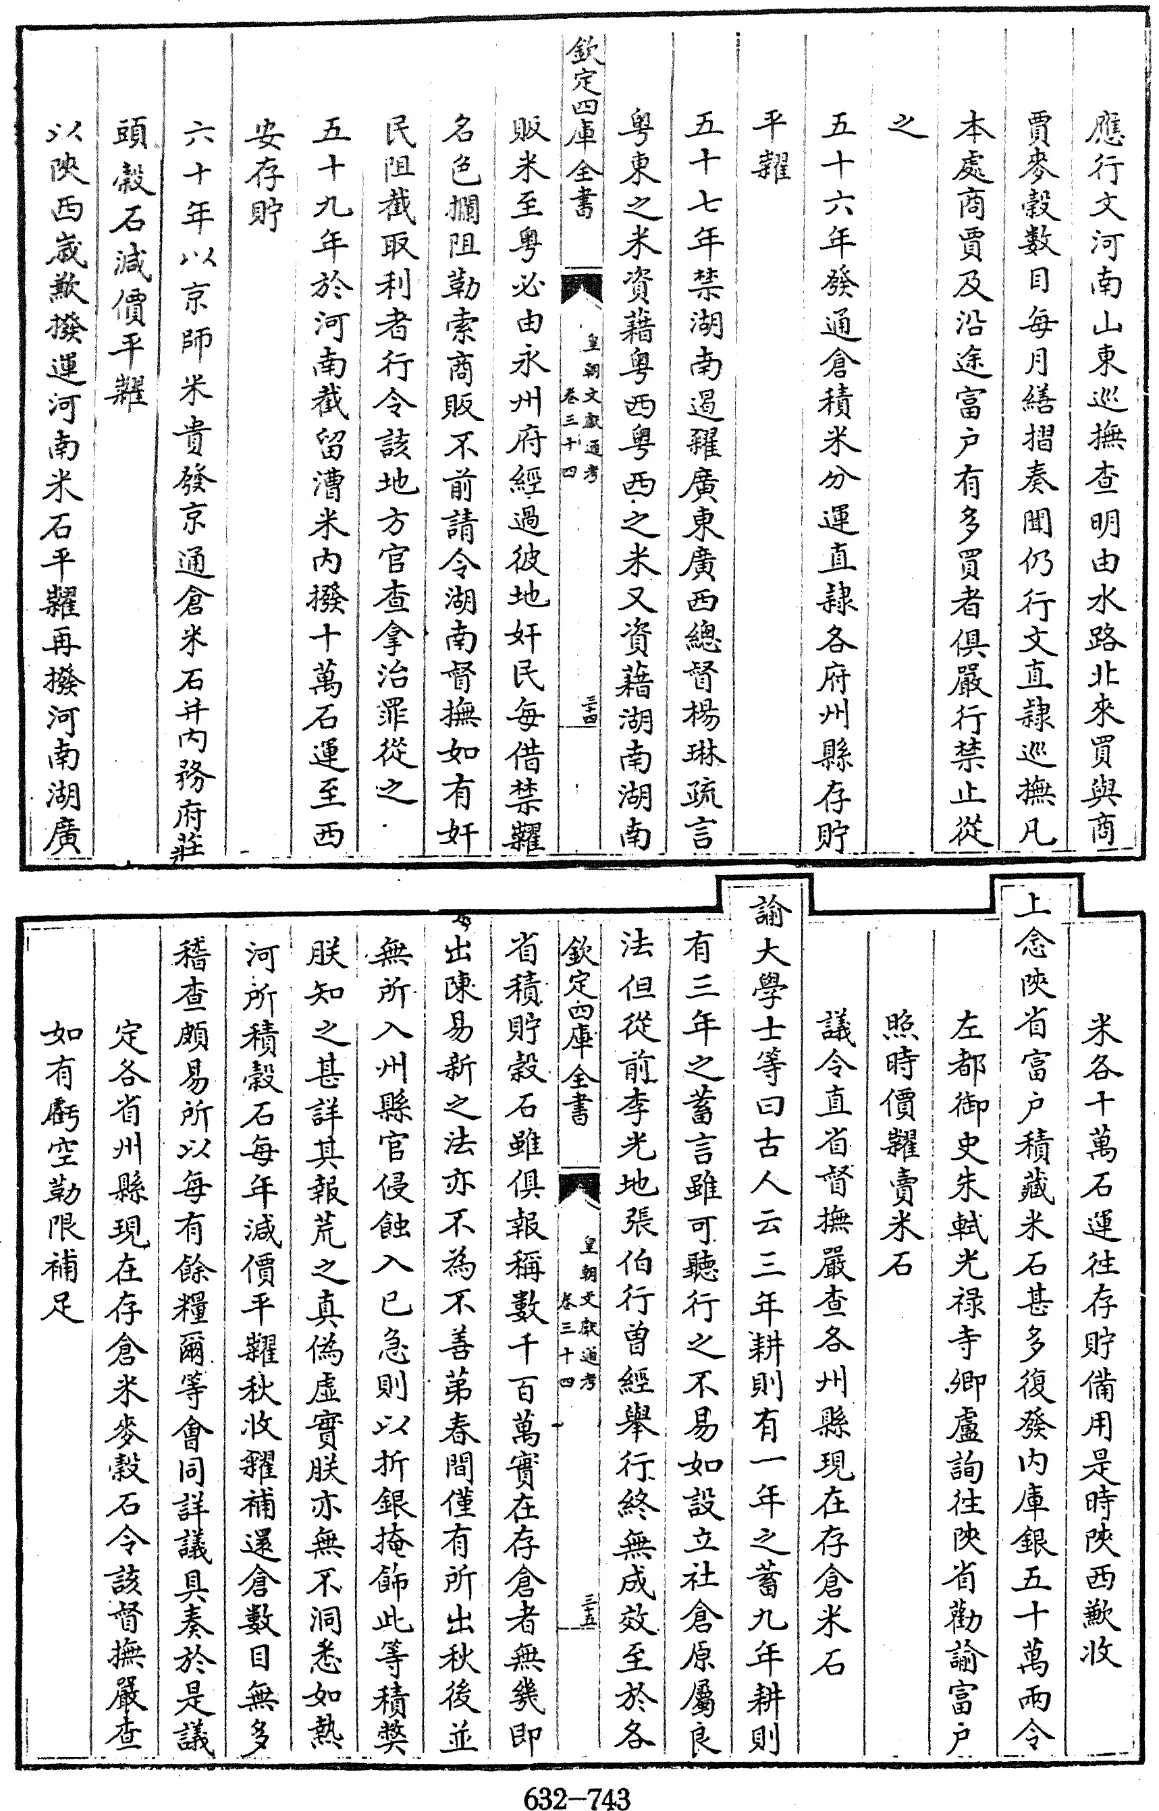 應行文河南山東巡撫查明由水路北來買與商
賈麥穀數目每月繕摺奏聞仍行文直隸巡撫凡
本處商賈及沿途富户有多買者俱嚴行禁止從
之
五十六年發通倉積米分運直隸各府州縣存貯
平糶
五十七年禁湖南遏糴廣東廣西總督楊琳疏言
粤東之米資藉粤西粤西之米又資藉湖南湖南
欽定四庫全書
皇朝文獻通考
卷三十四
三十四
販米至粤必由永州府經過彼地奸民每借禁糶
名色攔阻勒索商販不前請令湖南督撫如有奸
民阻截取利者行令該地方官查拿治罪從之
五十九年於河南截留漕米内撥十萬石運至西
安存貯
六十年以京師米貴發京通倉米石并内務府莊
頭穀石減價平糶
以陜西歲歉撥運河南米石平糶再撥河南湖廣
米各十萬石運往存貯備用是時陜西歉收
上念陜省富户積藏米石甚多復發内庫銀五十萬兩令
左都御史朱軾光禄寺卿盧詢往陜省勸諭富户
照時價糶賣米石
議令直省督撫嚴查各州縣現在存倉米石
諭大學士等曰古人云三年耕則有一年之蓄九年耕則
有三年之蓄言雖可聽行之不易如設立社倉原屬良
法但從前李光地張伯行曾經舉行終無成效至於各
欽定四庫全書
皇朝文獻通考
卷三十四
三五
省積貯穀石雖俱報稱數千百萬實在存倉者無幾即
出陳易新之法亦不為不善第春間僅有所出秋後並
無所入州縣官侵蝕入已急則以折銀掩飾此等積獘
朕知之甚詳其報荒之真偽虚實朕亦無不洞悉如熱
河所積穀石每年減價平糶秋收糴補還倉數目無多
稽查頗易所以每有餘糧爾等會同詳議具奏於是議
定各省州縣現在存倉米麥穀石令該督撫嚴查
如有虧空勒限補足
632-743